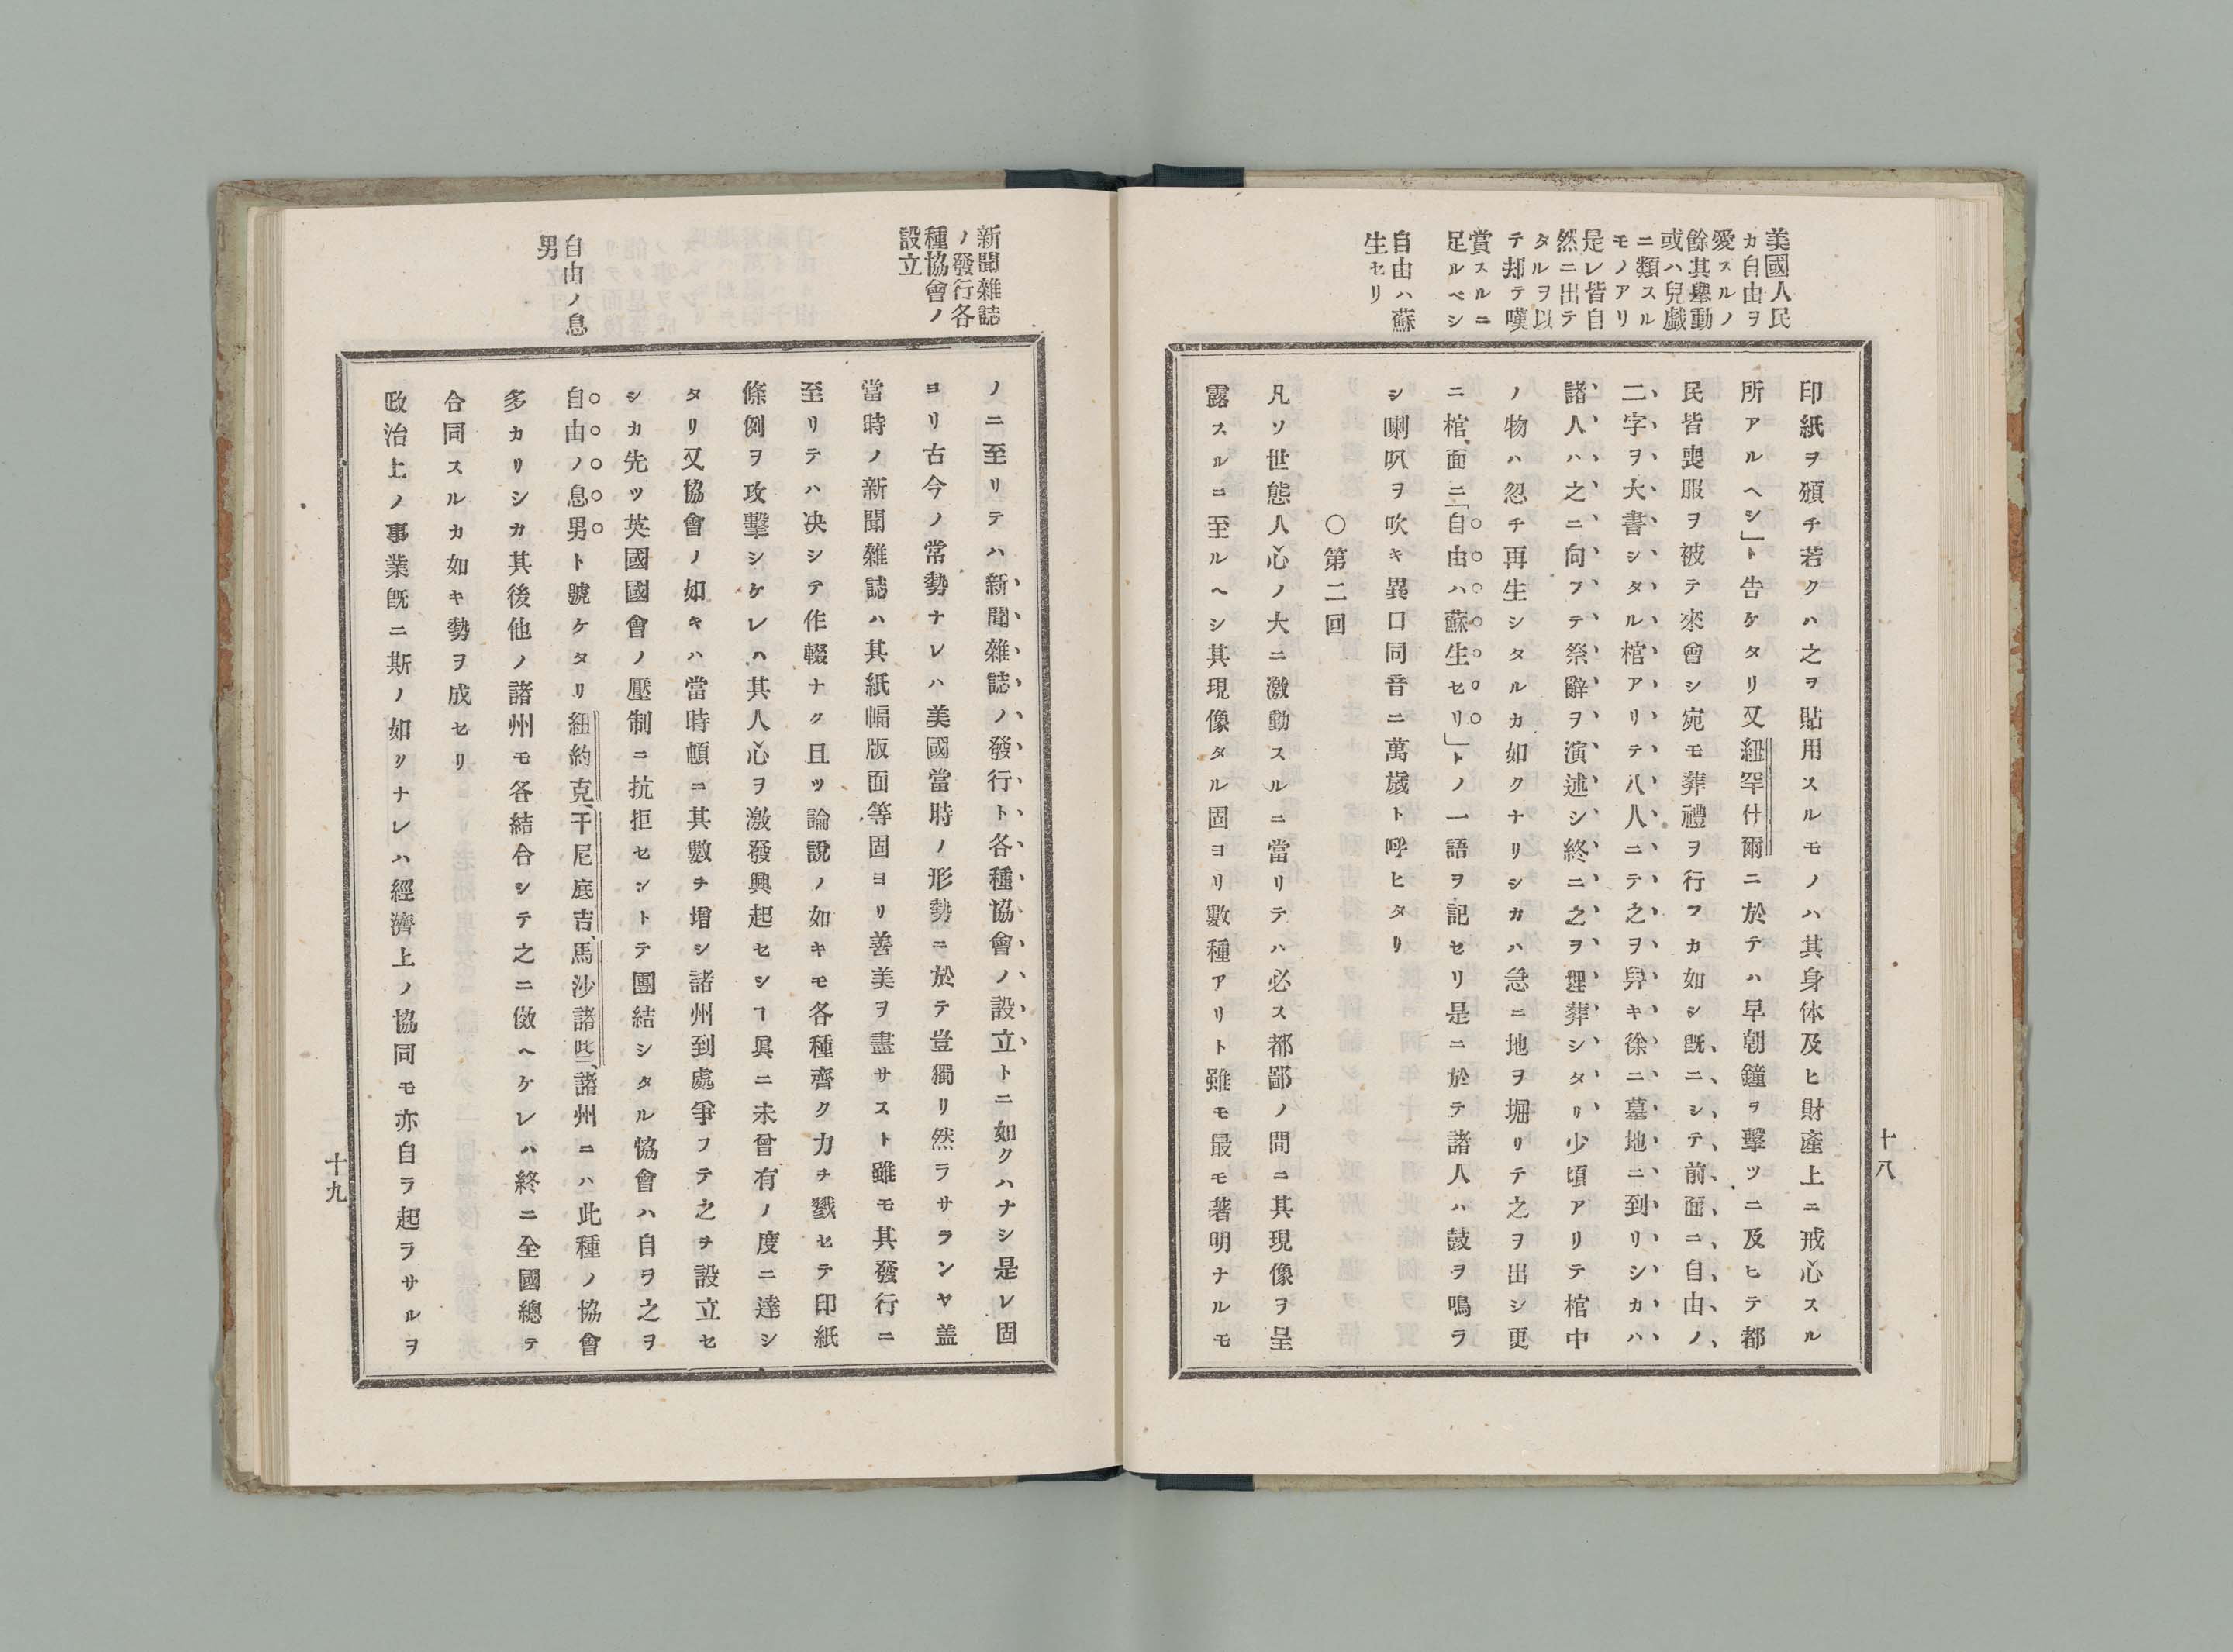 美國人民
カ自由ヲ
愛スルノ
餘其擧動
或ハ兒戯
ニ類スル
モノアリ
是レ皆自
然ニ出テ
タルヲ以
テ却テ嘆
賞スルニ
足ルベシ
自由ハ蘇
生セリ
印紙ヲ頒チ若クハ之ヲ貼用スルモノハ其身体及ヒ財產上ニ戒心スル
所アルヘシ」ト告ケタリ又紐罕什爾ニ於テハ早朝鐘ヲ擊ツニ及ヒテ都
民皆喪服ヲ被テ來會シ宛モ葬禮ヲ行フカ如シ既ニシテ前面ニ自由ノ
二字ヲ大書シタル棺アリテ八人ニテ之ヲ舁キ徐ニ墓地ニ到リシカハ
諸人ハ之ニ向フテ祭辭ヲ演述シ終ニ之ヲ埋葬シタリ少頃アリテ棺中
ノ物ハ忽チ再生シタルカ如クナリシカハ急ニ地ヲ堀リテ之ヲ出シ更
ニ棺面ニ「自由ハ蘇生セリ」トノ一語ヲ記セリ是ニ於テ諸人ハ鼓ヲ鳴ラ
シ喇叭ヲ吹キ異口同音ニ萬歲ト呼ヒタリ
○第二回
凡ソ世態人心ノ大ニ激動スルニ當リテハ必ス都鄙ノ間ニ其現像ヲ呈
露スルニ至ルヘシ其現像タル固ヨリ數種アリト雖モ最モ著明ナルモ
十八
新聞雜誌
ノ發行各
種協會ノ
設立
自由ノ息
男
ノニ至リテハ新聞雜誌ノ發行ト各種協會ノ設立トニ如クハナシ是レ固
ヨリ古今ノ常勢ナレハ美國當時ノ形勢ニ於テ豈獨リ然ラサランヤ盖
當時ノ新聞雜誌ハ其紙幅版面等固ヨリ善美ヲ盡サスト雖モ其發行ニ
至リテハ决シテ作輟ナク且ツ論說ノ如キモ各種齊ク力チ戮セテ印紙
條例ヲ攻擊シケレハ其人心ヲ激發興起セシヿ眞ニ未曾有ノ度ニ達シ
タリ又協會ノ如キハ當時頓ニ其數チ增シ諸州到處爭フテ之チ設立セ
シカ先ツ英國國會ノ壓制ニ抗拒セントテ團結シタル協會ハ自ラ之ヲ
自由ノ息男ト號ケタリ紐約克、干尼底吉、馬沙諸些、諸州ニハ此種ノ協會
多カリシカ其後他ノ諸州モ各結合シテ之ニ傚ヘケレハ終ニ全國總テ
合同スルカ如キ勢ヲ成セリ
政治上ノ事業既ニ斯ノ如クナレハ經濟上ノ協同モ亦自ラ起ラサルヲ
十九